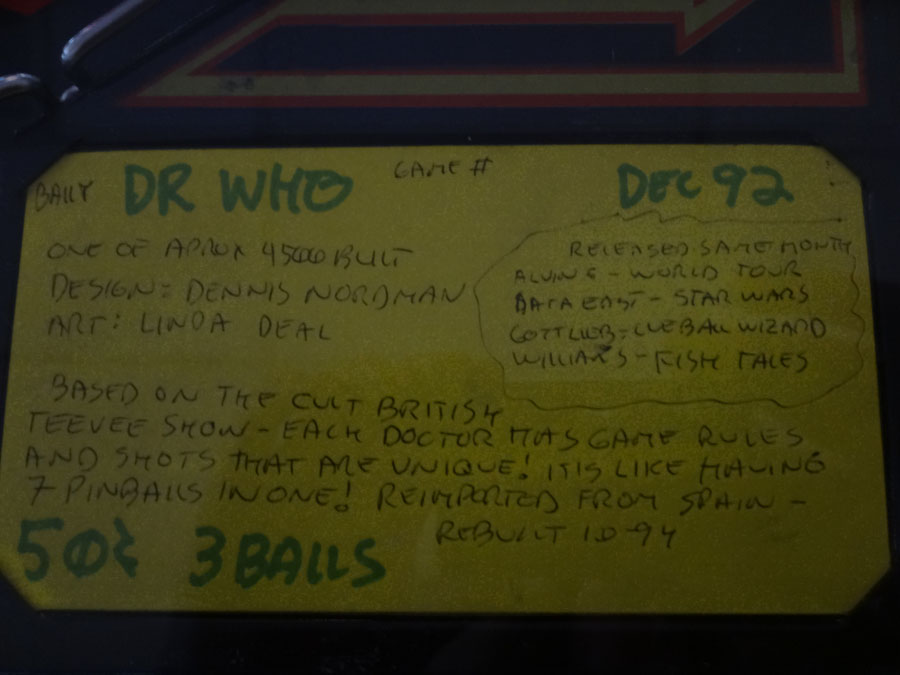 BALLY DR WHO GAME # DEC 92
ONE OF APROX 45000 BUILT
DESIGN: DENNIS NORDMAN
ART: LINDA DEAL
RELEASED SAME MONTH
ALVIN G - WORLD TOUR
DATA EAST - STAR WARS
GOTTLIEB - CUEBALL WIZARD
WILLIAMS - FISH TALES
BASED ON THE CULT BRITISH
TEEVEE SHOW - EACH DOCTOR HAS GAME RULES
AND SHOTS THAT ARE UNIQUE! IT IS LIKE HAVING
7 PINBALLS IN ONE! REIMPORTED FROM SPAIN -
REBUILT 10-94
50¢ 3 BALLS